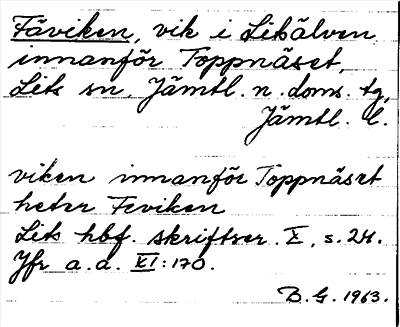 Fäviken, vik i Litsälven
innanför Toppnäset,
Lits sn, Jämtl. n. doms. tg,
Jämtl. l.
viken innanför Toppnäset
heter Feviken
Lits hbf. skriftser. X, s. 24.
Jfr a.a. XI:170.
B.G. 1963.